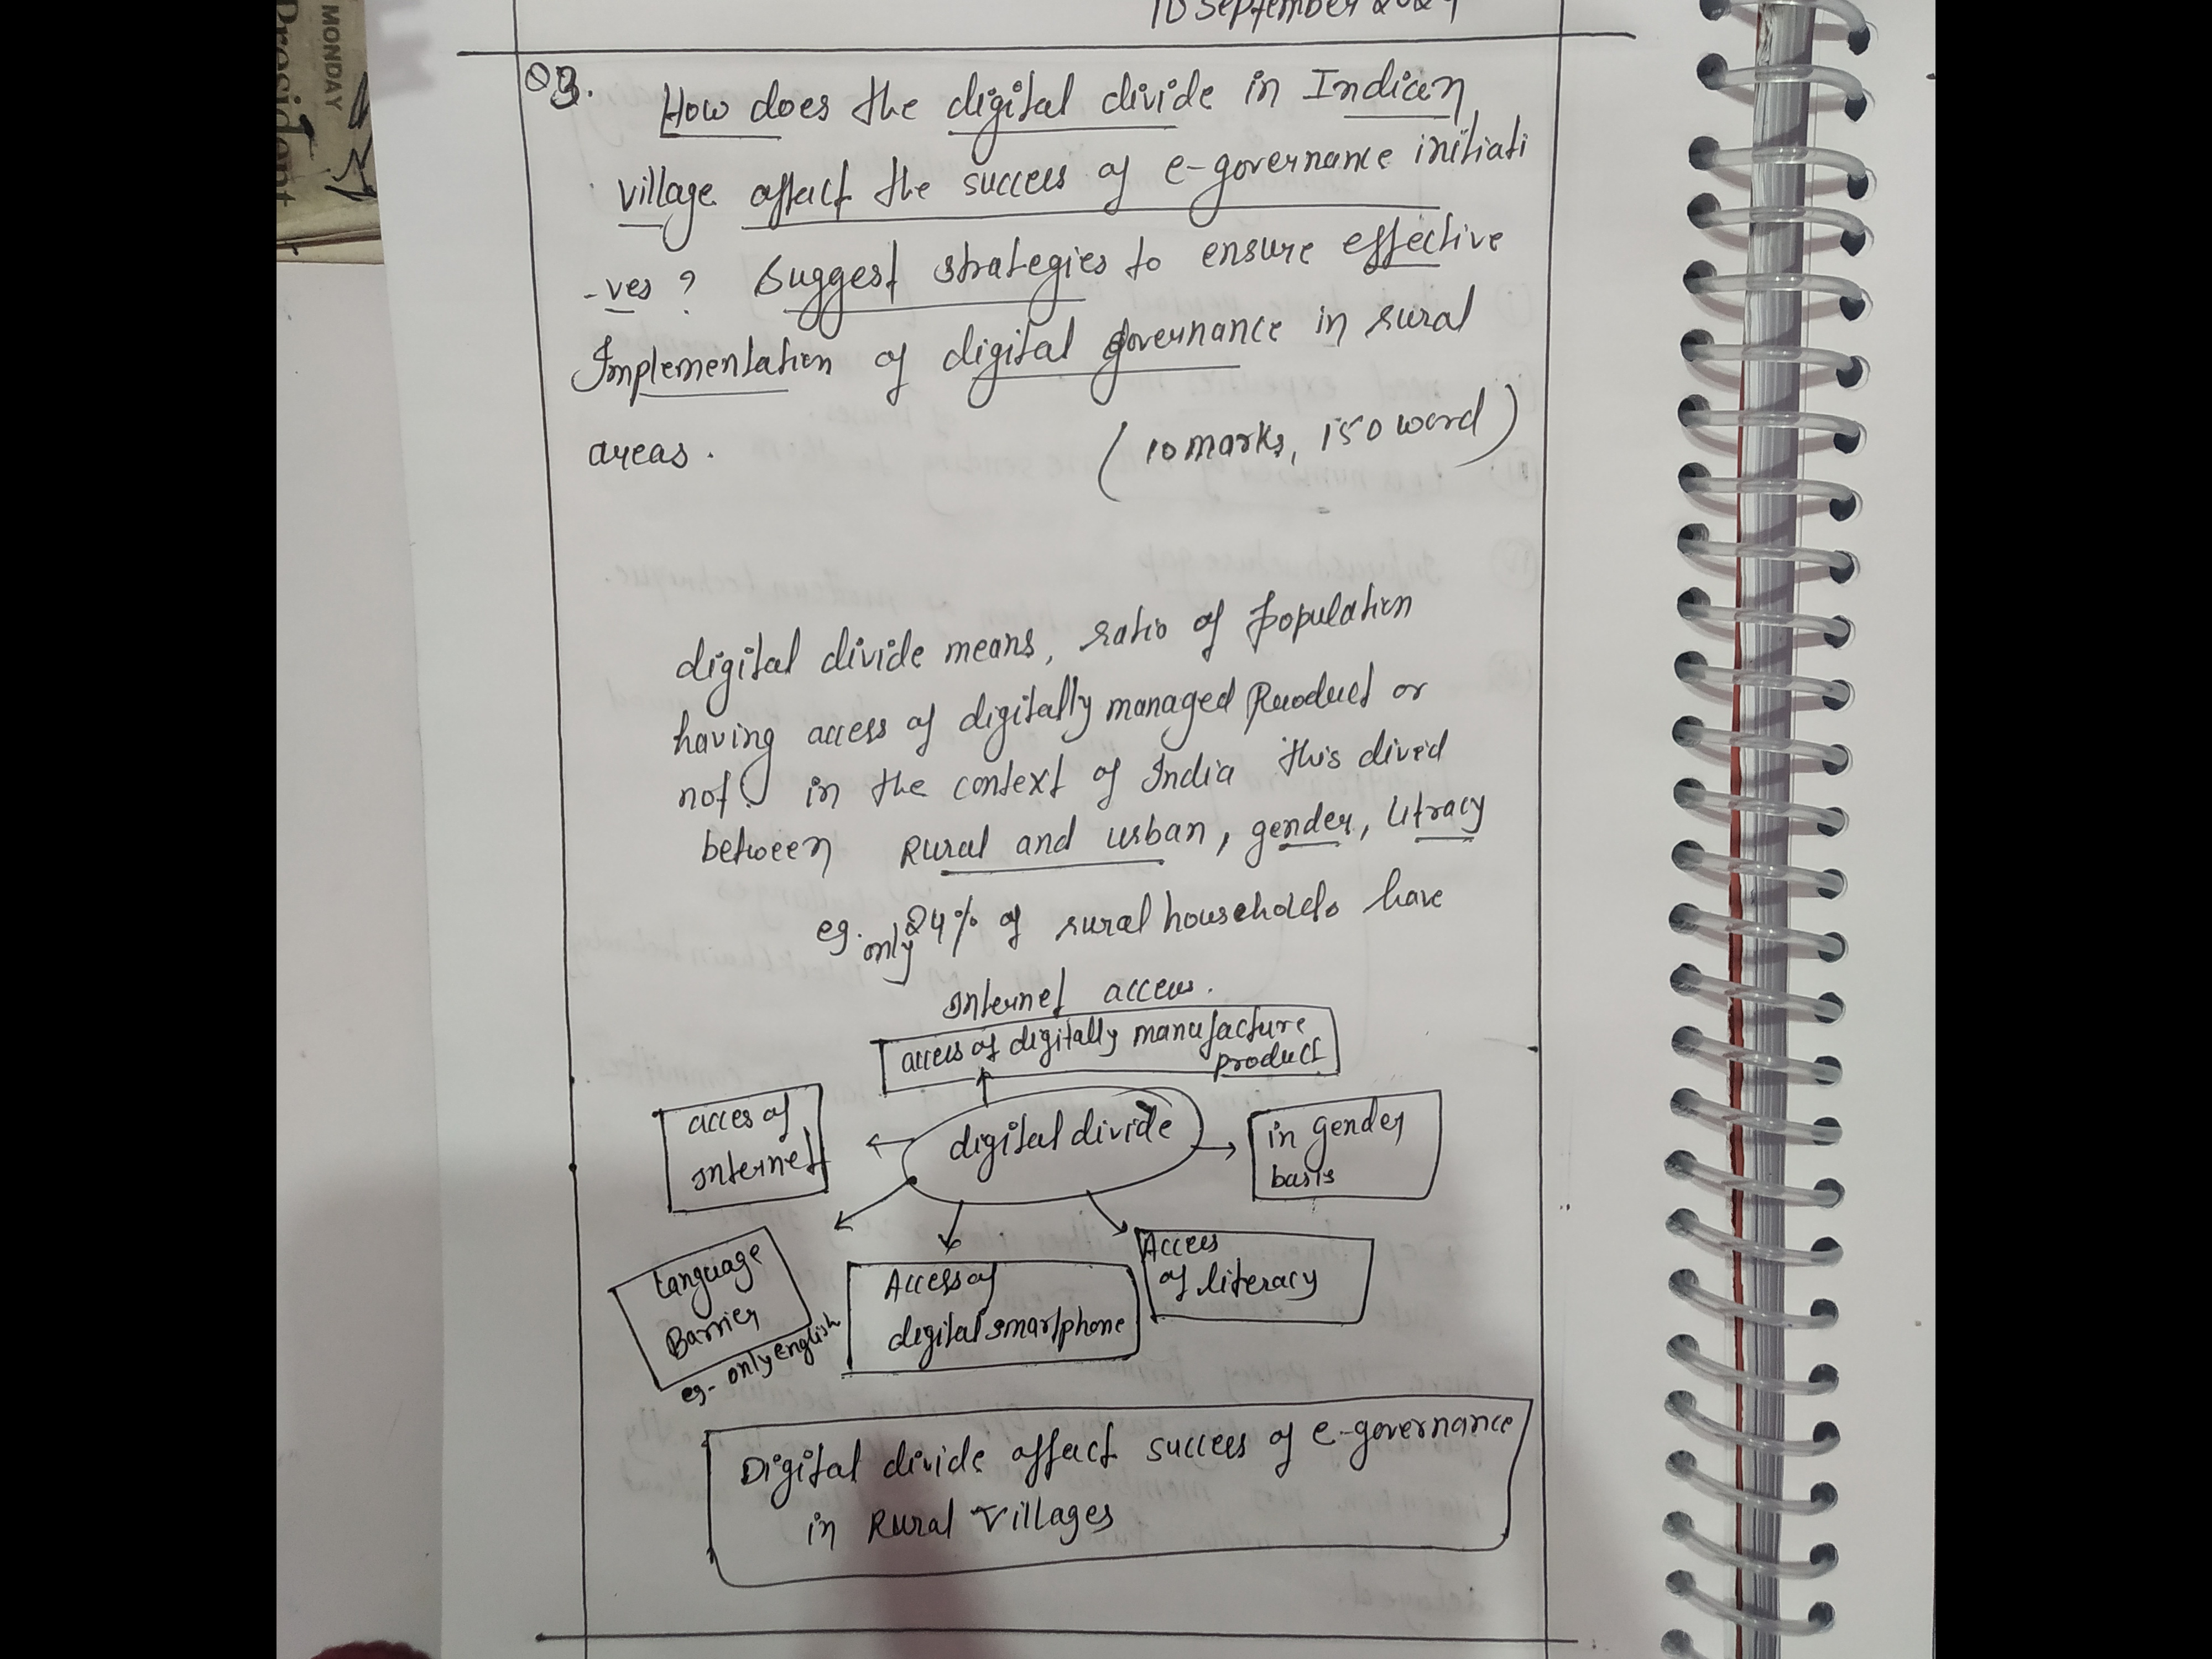 MONDAY
President
10 September 2024
Q3.
How does the digital divide in Indian
village affect the success of e-governance initiati
-ves ? Suggest strategies to ensure effective
Implementation of digital governance in rural
areas.
(10 marks, 150 word)
digital divide means, ratio of population
having access of digitally managed Product or
not. in the context of India this divied
between Rural and urban, gender, litracy
eg. only 24% of rural households have
internet access.
access of digitally manufacture
product
acces of
internet
digital divide
in gender
basis
Language
Barrier
eg- only english
Access of
digital smartphone
Access
of literacy
Digital divide affect success of e-governance
in Rural Villages